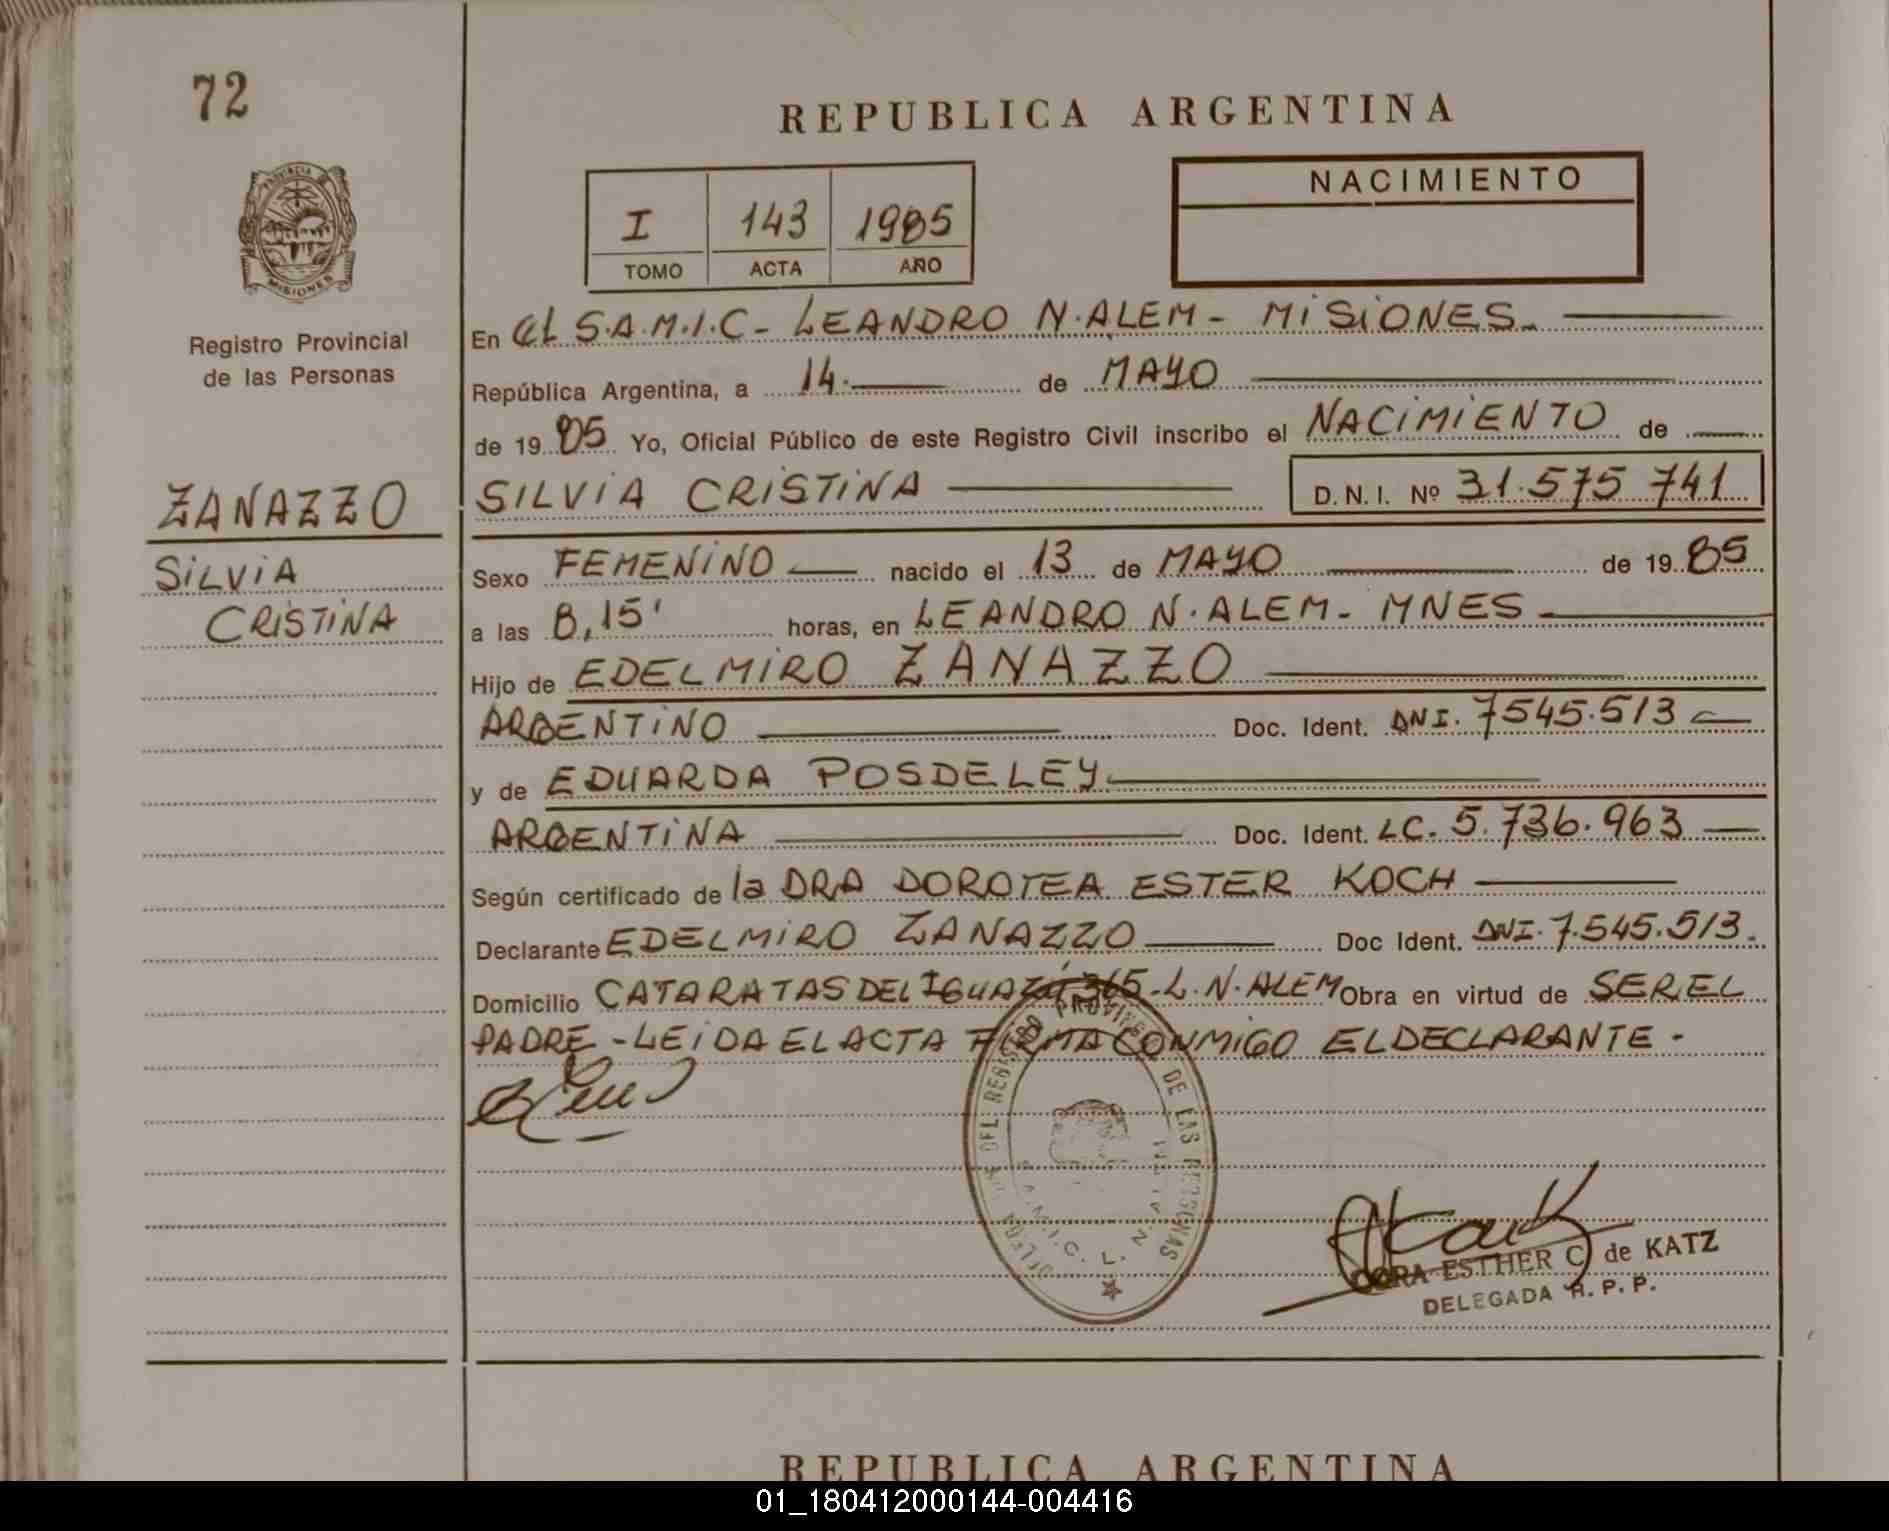 72
REPUBLICA ARGENTINA
PROVINCIA DE
MISIONES
Registro Provincial
de las Personas
I 143 1985
TOMO ACTA AÑO
NACIMIENTO
En EL S.A.M.I.C - LEANDRO N. ALEM - MiSiONES.
República Argentina, a 14. de MAYO
de 19 85 Yo, Oficial Público de este Registro Civil inscribo el NACiMiENTO de
ZANAZZO
SiLViA
CRiSTiNA
SILViA CRiSTiNA D. N. I. Nº 31.575 741
Sexo FEMENiNO nacido el 13 de MAYO de 19 85
a las 8,15' horas, en LEANDRO N. ALEM - MNES
Hijo de EDELMiRO ZANAZZO
ARGENTiNO Doc. Ident. DNI. 7545.513
y de EDUARDA POSDELEY
ARGENTiNA Doc. Ident. LC. 5.736.963
Según certificado de la DRA DOROTEA ESTER KOCH
Declarante EDELMiRO ZANAZZO Doc Ident. DNI. 7.545.513.
Domicilio CATARATAS DEL IGUAZÚ 365 - L. N. ALEM Obra en virtud de SER EL
PADRE - LEiDA EL ACTA FiRMA CONMiGO EL DECLARANTE -
REGISTRO PROVINCIAL DE LAS PERSONAS
DORA ESTHER C. de KATZ
DELEGADA R. P. P.
REPUBLICA ARGENTINA
01_180412000144-004416